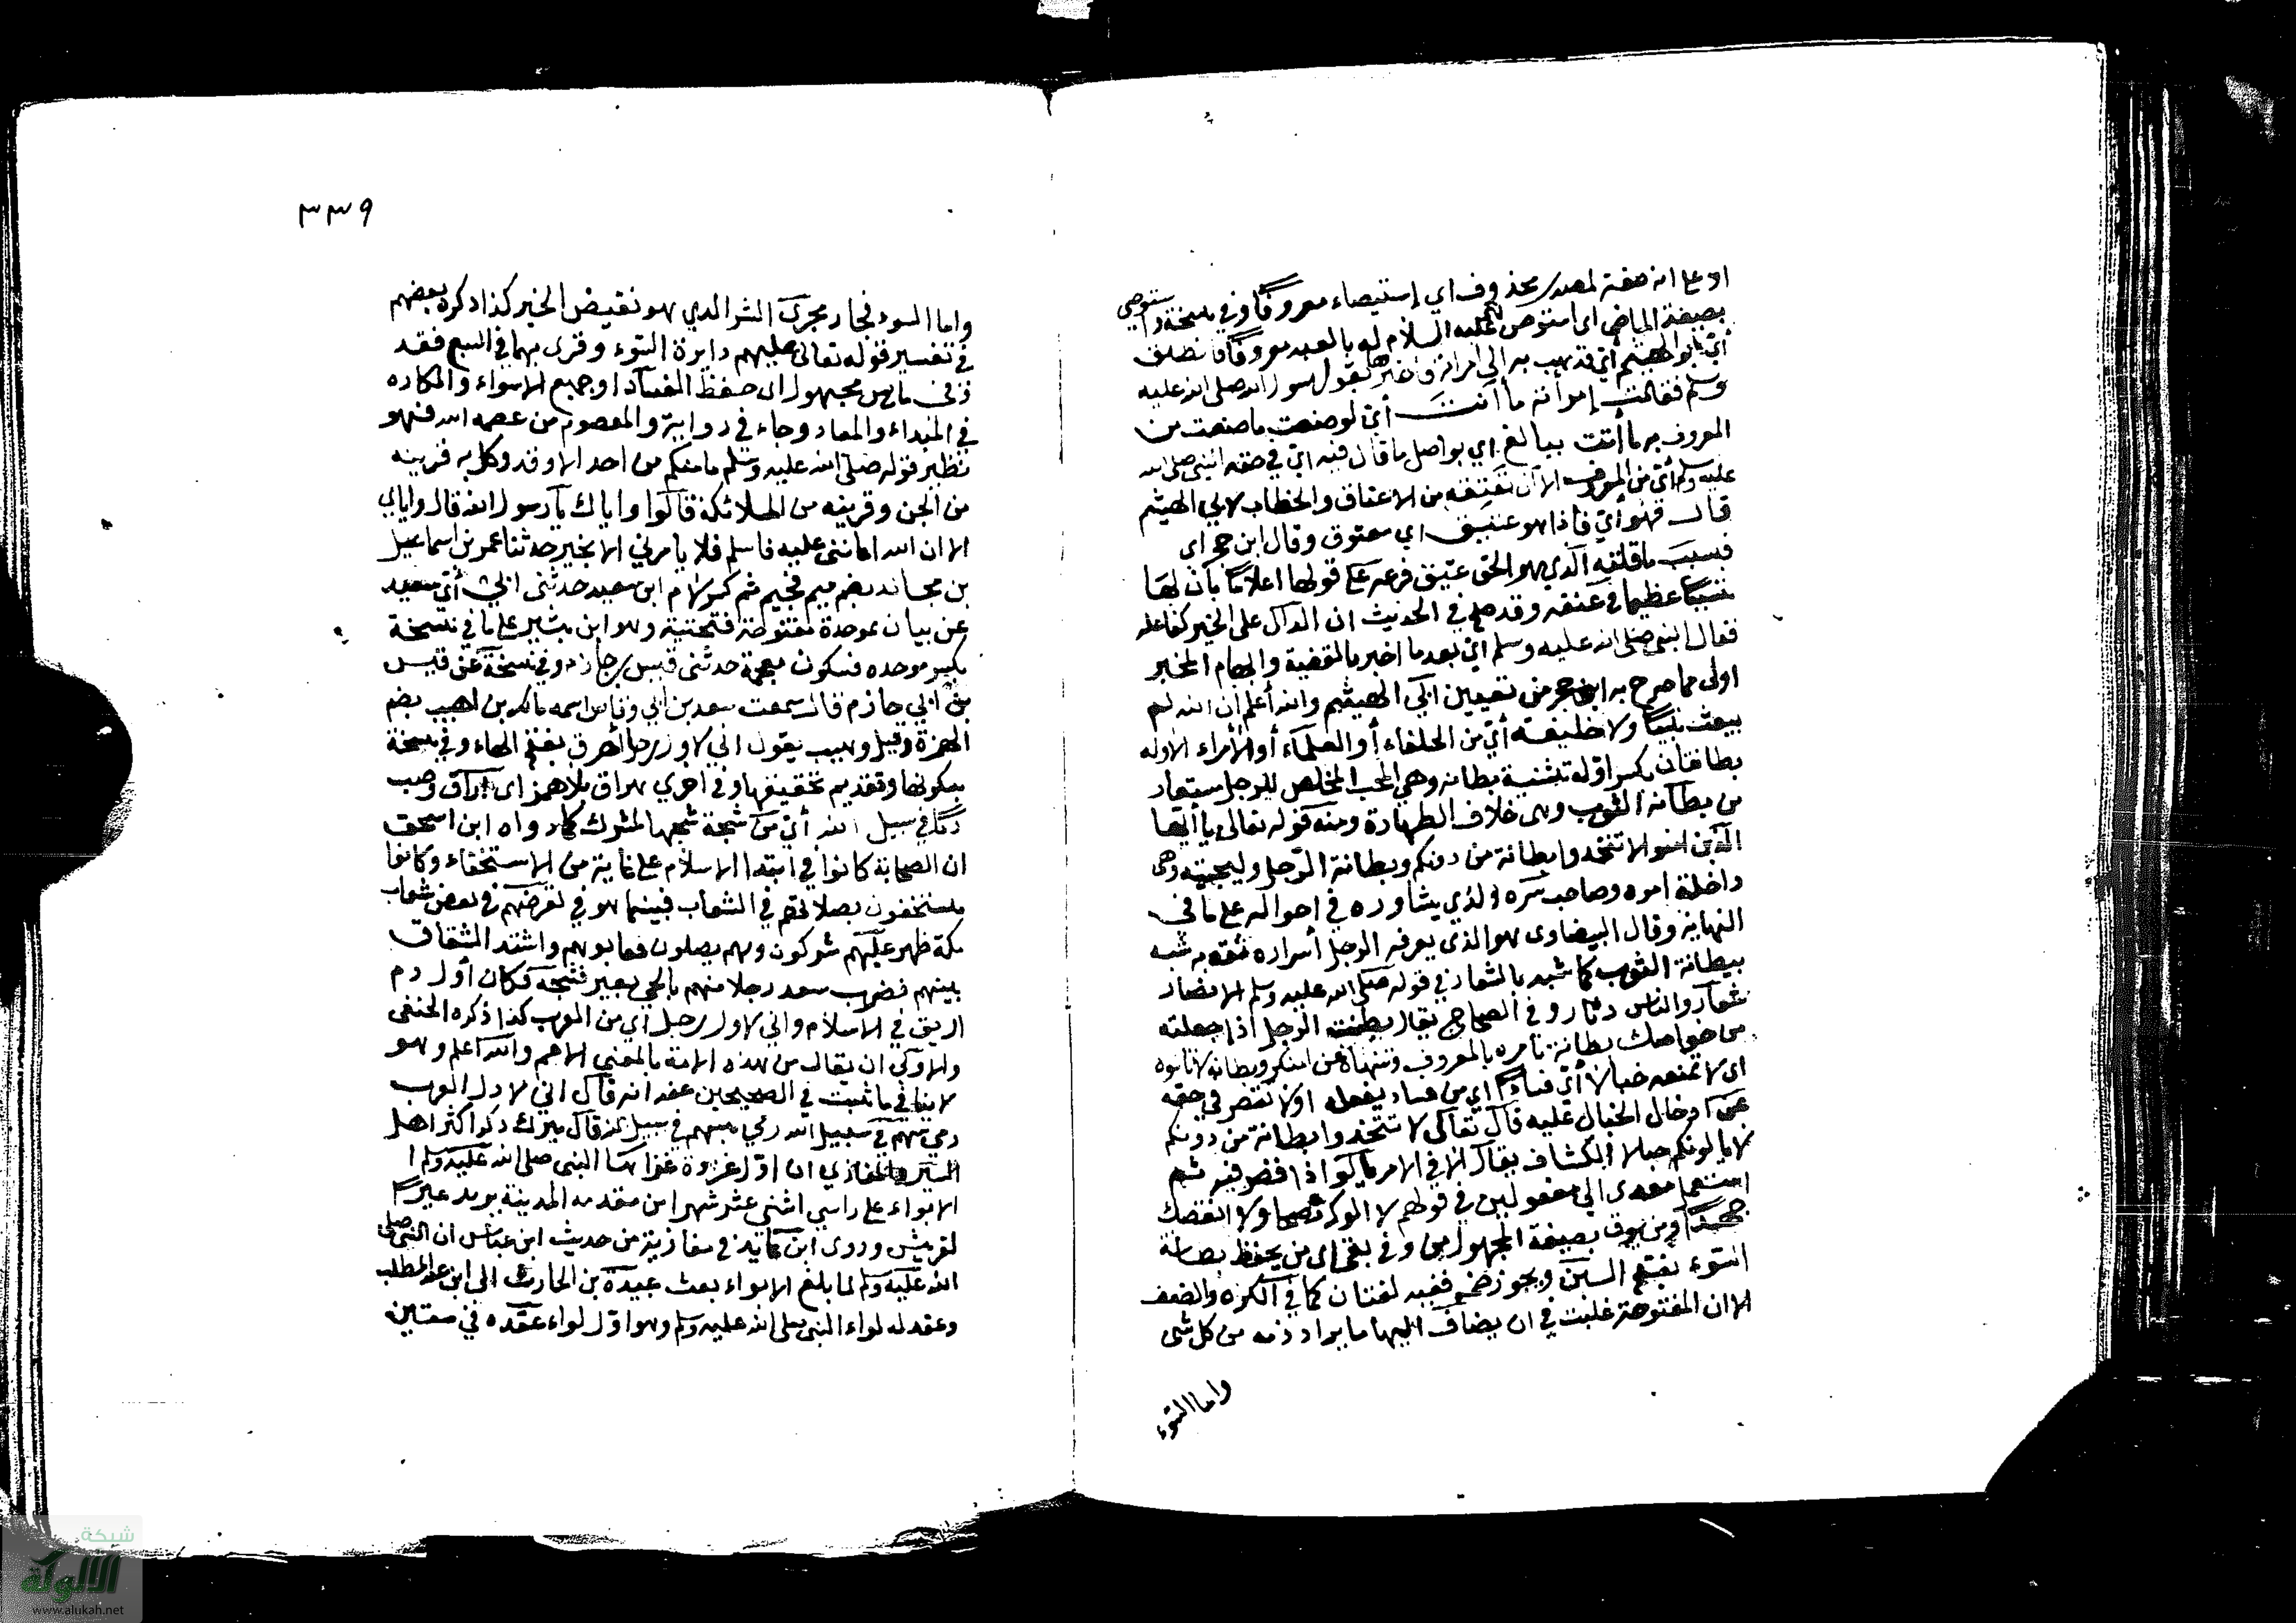 او على انه صفة لمصدر محذوف اي استيصاء معروفا وفي نسخة واستوصي
بصيغة الماضي اى استوصى عليه السلام له بالعبد معروفا فانطلق
أي أبو الهيثم أي فذهب به الى امرأته فاخبرها بقول رسول الله صلى الله عليه
وسلم فقالت إمرأته ما أنت أي لو صنعت ما صنعت من
المعروف به ما أنت ببالغ اي بواصل ما قال فيه اي في حقه النبي صلى الله
عليه وسلم أي من المعروف الا أن تعتقه من الاعتاق والخطاب لابي الهيثم
قال فهو أي فاذا هو عتيق اي معتوق وقال ابن حجر اى
فبسبب ما قلتيه الذي هو الحق عتيق فرعه على قولها اعلاما بأن لها
تسببا عظيما في عتقه وقد صح في الحديث ان الدال على الخير كفاعله
فقال النبي صلى الله عليه وسلم اي بعد ما اخبر بالقضية وابهام المخبر
اولى مما صرح به ابن حجر من تعيين ابي الهيثم والله أعلم ان الله لم
يبعث نبيا ولا خليفة أي من الخلفاء أو العلماء أو الأمراء الا وله
بطانتان بكسر اوله تثنية بطانه وهي المحب المخلص للرجل مستعار
من بطانة الثوب وهى خلاف الظهارة ومنه قوله تعالى يا أيها
الذين امنوا لا تتخذوا بطانة من دونكم وبطانة الرجل وليجته وهى
داخلة امره وصاحب سره الذي يشاوره في احواله على ما في
النهاية وقال البيضاوى هو الذي يعرفه الرجل أسراره ثقة به شبه
ببطانة الثوب كما شبه بالشعار في قوله صلى الله عليه وسلم الانصار
شعار والناس دثار وفي الصحاح يقال بطنت الرجل اذا جعلته
من خواصك بطانة تامره بالمعروف وتنهاه عن المنكر وبطانة لا تالوه
اى لا تمنعه خبالا أي فسادا اي من فساد يفعله او لا تقصر في حقه
عن ادخال الخبال عليه قال تعالى لا تتخذوا بطانة من دونكم
لا يالونكم خبالا الكشاف يقال الا في الامر يالوا اذا قصر فيه ثم
استعمل معدى الى مفعولين في قولهم لا الوك نصحا ولا انقصك
جهدا ومن يوق بصيغة المجهول من وقى يقي اى من يحفظ بطانة
السوء بفتح السين ويجوز ضمه ففيه لغتان كما في الكره والضعف
الا ان المفتوحة غلبت في ان يضاف اليها ما يراد ذمه من كل شى
واما السوء
٣٣٩
واما السوء فجار مجرى الشر الذي هو نقيض الخير كذا ذكره بعضهم
في تفسير قوله تعالى عليهم دايرة السوء وقرى بهما في السبع فقد
وقى ماض مجهول اى حفظ الفساد او جميع الاسواء والمكاره
في المبداء والمعاد وجاء في رواية والمعصوم من عصمه الله فهو
نظير قوله صلى الله عليه وسلم ما منكم من احد الا وقد وكل به قرينه
من الجن وقرينه من الملائكة قالوا واياك يا رسول الله قال واياي
الا ان الله اعانني عليه فاسلم فلا يامرني الا بخير حدثنا عمر بن اسماعيل
بن مجالد بضم ميم فجيم ثم كسر لام ابن سعيد حدثنى ابي أي سعيد
عن بيان بموحدة مفتوحة فتحتية وهو ابن بشير على ما في نسخة
بكسر موحده فسكون معجمة حدثني قيس بن حازم وفي نسخة عن قيس
بن ابي حازم قال سمعت سعد بن ابي وقاص اسمه مالك بن اهيب بضم
الهمزة وقيل وهيب يقول اني لاول رجل أهرق بفتح الهاء وفي نسخة
بسكونها وتقديم تحقيقها وفي اخري هراق بلا همز اى اراق وصب
دما في سبيل الله أي من شجة شجها لمشرك كما رواه ابن اسحق
ان الصحابة كانوا في ابتدا الاسلام على غاية من الاستخفاء وكانوا
يستخفون بصلاتهم في الشعاب فبينما هو في نفر منهم في بعض شعاب
مكة ظهر عليهم مشركون وهم يصلون فعابوهم واشتد الشقاق
بينهم فضرب سعد رجلا منهم بلحى بعير فشجه فكان أول دم
اريق في الاسلام واني لاول رجل اي من العرب كذا ذكره الحنفى
والاولى ان يقال من هذه الامة بالمعنى الاعم والله اعلم وهو
لا ينافي ما ثبت في الصحيحين عنه انه قال اني لاول العرب
رمي بسهم في سبيل الله رمي بسهم في سبيل الله قال ميرك ذكر اكثر اهل
السير والمغازي ان اول غزوة غزاها النبي صلى الله عليه وسلم ا
لابواء على راس اثنى عشر شهرا من مقدمه المدينة يريد عيرا
لقريش وروى ابن عايذ في مغازيه من حديث ابن عباس ان النبي صلى
الله عليه وسلم لما بلغ الابواء بعث عبيدة بن الحارث الى ابن عبد المطلب
وعقد له لواء النبي صلى الله عليه وسلم وهو اول لواء عقده في ستين
شبكة
الألوكة
www.alukah.net